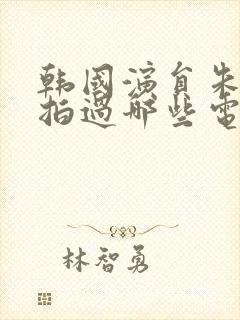 韩国演员朱
拍过哪些电
林智勇